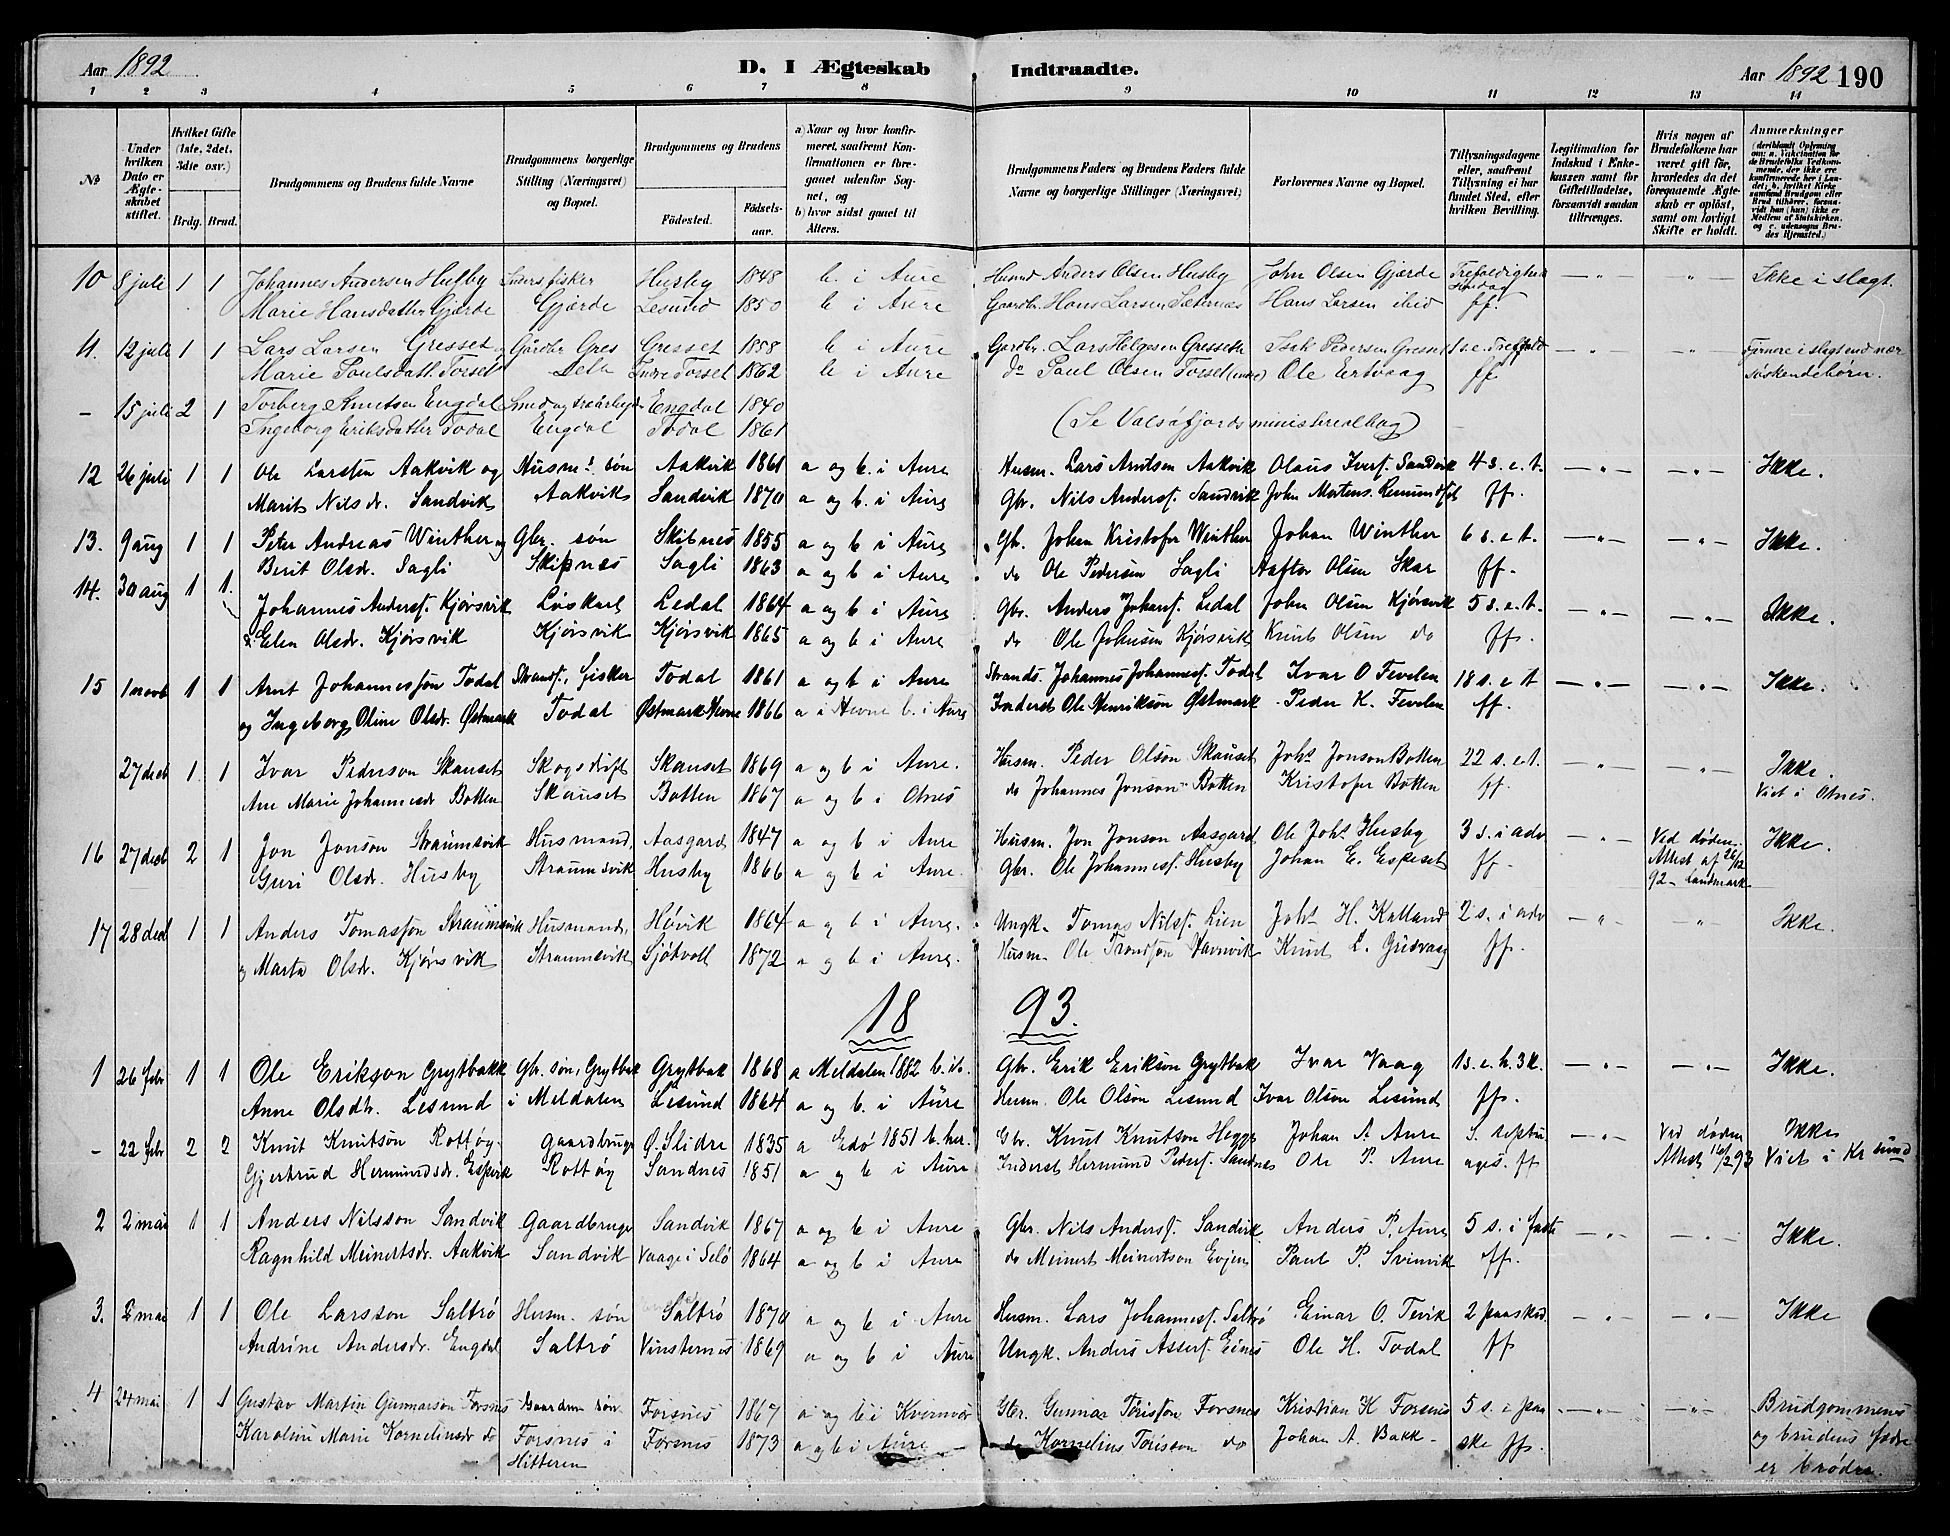 Aar 1892 D. I Ægteskab Indtraadte. Aar 1892 190
1 2 3 4 5 6 7 8 9 10 11 12 13 14
№
Under hvilken Dato er Ægteskabet stiftet.
Hvilket Gifte (1ste, 2det, 3die osv.)
Brdg. Brud.
Brudgommens og Brudens fulde Navne
Brudgommens borgerlige Stilling (Næringsvei) og Bopæl.
Brudgommens og Brudens
Fødested. Fødselsaar.
a) Naar og hvor konfirmeret, saafremt Konfirmationen er foregaaet udenfor Sognet, og
b) hvor sidst gaaet til Alters.
Brudgommens Faders og Brudens Faders fulde Navne og borgerlige Stillinger (Næringsvei)
Forlovernes Navne og Bopæl.
Tillysningsdagene eller, saafremt Tillysning ei har fundet Sted, efter hvilken Bevilling.
Legitimation for Indskud i Enkekassen samt for Giftetilladelse, forsaavidt saadan tiltrænges.
Hvis nogen af Brudefolkene har været gift før, hvorledes da det foregaaende Ægteskab er opløst, samt om lovligt Skifte er holdt.
Anmærkninger
10 8 juli 1 1 Johannes Andersen Husby Inders fisker Husby 1848 b. i Aure Husmd Anders Olsen Husby John Olsen Gjærde Trefoldigheds Søndag — " — " Ikke i slægt.
Marie Hansdatter Gjærde Gjærde Lesund 1850 b i Aure Gaardbr. Hans Larsen Sæternæs Hans Larsen ibid ff.
11. 12 juli 1 1 Lars Larsen Gresset Gårdbr Gres Gresset 1858 b i Aure Gardbr. Lars Helgesen Gresseth Isak Pedersen Gresset 1 s. e. Trefold — " — " — Fjernere i slægt end nær
Marie Poulsdatt. Torset Indre Torset 1862 b i Aure do Paul Olsen Torset (indre) Ole Ertvaag ff søskendebørn.
— 15 juli 2 1 Torberg Knutsen Engdal Smed og træarbejder Engdal 1840
Ingeborg Eriksdatter Todal Engdal Todal 1861 (Se Valsøfjords ministerialbog) —
12 26 juli 1 1 Ole Larsten Aakvik og Husm.s søn Aakvik 1861 a og b. i Aure Husm. Lars Arntsen Aakvik Olaus Iversf. Sandvik 4 s. e. t. — " — — " — Ikke.
Marit Nilsdr. Sandvik Aakvik Sandvik 1870 a og b. i Aure Gbr. Nils Andersf. Sandvik John Mortens. ff.
13. 9 aug 1 1 Peter Andreas Winther og Gbr. søn Skibnes 1855 a og b i Aure Gb. Johan Kristofer Winther Johan Winther 6 s. e. t. — " — — " — Ikke.
Berit Olsdr. Sagli Skipnes Sagli 1863 a og b i Aure do Ole Pedersen Sagli Aafter Olsen Skar ff.
14. 30 aug 1 1. Johannes Andersf. Kjørsvik Løskarl Ledal 1864 a og b i Aure Gbr. Anders Johansf. Ledal John Olsen Kjørsvik 5 s. e. t. — " — — " — Ikke.
& Elen Olsdr. Kjørsvik Kjørsvik Kjørsvik 1865 a og b i Aure do Ole Johnsen Kjørsvik Knut Olsen do ff.
15 1 novb 1 1 Arnt Johannesson Todal Strandf., Fisker Todal 1861 a og b i Aure Strands. Johannes Johannesf. Todal Ivar O Fevelen 18 s. e. t — " — — " — Ikke.
og Ingeborg Oline Olsdr. Østmark Todal Østmark Hevne 1866 a i Hevne b. i Aure Inderst Ole Henrikson Østmark Peder K. Fevelen ff.
27 decb 1. 1 Ivar Pederson Skauset Skogsdrift Skauset 1869 a og b i Aure. Husm. Peder Olson Skauset Johs Jonson Botten 22 s. e. t. — " — — " — Ikke.
Ane Marie Johannesdr Botten Skauset Botten 1867 a og b i Otnes do Johannes Jonson Botten Kristofer Botten ff Viet i Otnes.
16 27 decb 2 1 Jon Jonson Straumsvik Husmand, Aasgard 1847 a og b i Aure Husm. Jon Jonson Aasgard Ole Johs Husby 3 s. i adv — " — Ved døden. Ikke.
Guri Olsdr. Husby Straumsvik Husby 1866 a og b i Aure. Gbr. Ole Johannesf. Husby Johan E. Espeset ff. Attest af 26/12 92 - Landmark
17 28 decb 1 1 Anders Tomasson Straumsvik Husmand, Høvik 1864 a og b i Aure. Ungk. Tomas Nilsf. Lien Johs H. Kalland 2 s. i adv — " — — " — Ikke.
og Marta Olsdr. Kjørsvik Straumsvik Sjøtvoll 1872 a og b i Aure. Husm. Ole Trondson Vavnvik Knut L. Gudvaag ff.
18 93.
1 26 febr 1 1 Ole Erikson Grytbakk Gbr. søn, Grytbak Grytbak 1868 a Meldalen 1882 b. ib. Gbr. Erik Erikson Grytbak Ivar Vaag 1 s. e. h. 3 k. — " — — " — Ikke.
Anne Olsdtr. Lesund i Meldalen Lesund 1864 a og b. i Aure Husm. Ole Olson Lesund Ivar Olson Lesund ff.
— 22 febr 2 2 Knut Knutson Rottøy. Gaardbruger Ø. Slidre 1835 a Edø 1851 b. her. Gbr. Knut Knutson Hegge Johan A. Aure S. septu — " — Ved døden Ikke
Gjertrud Hermundsdr. Espvik Rottøy Sandnes 1851 a og b i Aure Inderst Hermund Pedersf. Sandnes Ole P. Aure ages. ff Attest 16/2 93 Viet i Kr sund
2 2 mai 1 1 Anders Nilsson Sandvik Gaardbruger Sandvik 1867 a og b i Aure Gbr. Nils Andersf. Sandvik Anders P. Aure 5 s. i faste — " — — " — Ikke.
Ragnhild Meinertsdr. Aakvik Sandvik Vaage i Selø 1864 a og b i Aure do Meinert Meinertson Evjen Paul P. Svinvik ff.
3. 2 mai 1 1 Ole Larsson Saltrø Husm. søn Saltrø 1870 a og b i Aure Husm. Lars Johannesf. Saltrø Einar O. Tevik 2 paaskd. — " — — " — Ikke
Andrine Andersdr. Engdal Saltrø Vinsternes 1869 a og b i Aure Ungk. Anders Assersf. Eines Ole H. Todal ff
4 24 mai 1 1 Gustav Martin Gunnarson Forsnes Gaardm. søn Forsnes 1867 a og b i Kvernvær Gbr. Gunnar Tørisson Forsnes Kristian K Forsnes 5 s. e. paa — " — — " — Brudgommens
Karoline Marie Kornelius­dr do Forsnes i Forsnes 1873 a og b i Aure do Kornelius Tørisson do Johan A. Bakk ske ff. og brudens fædre
Hitteren er brødre.